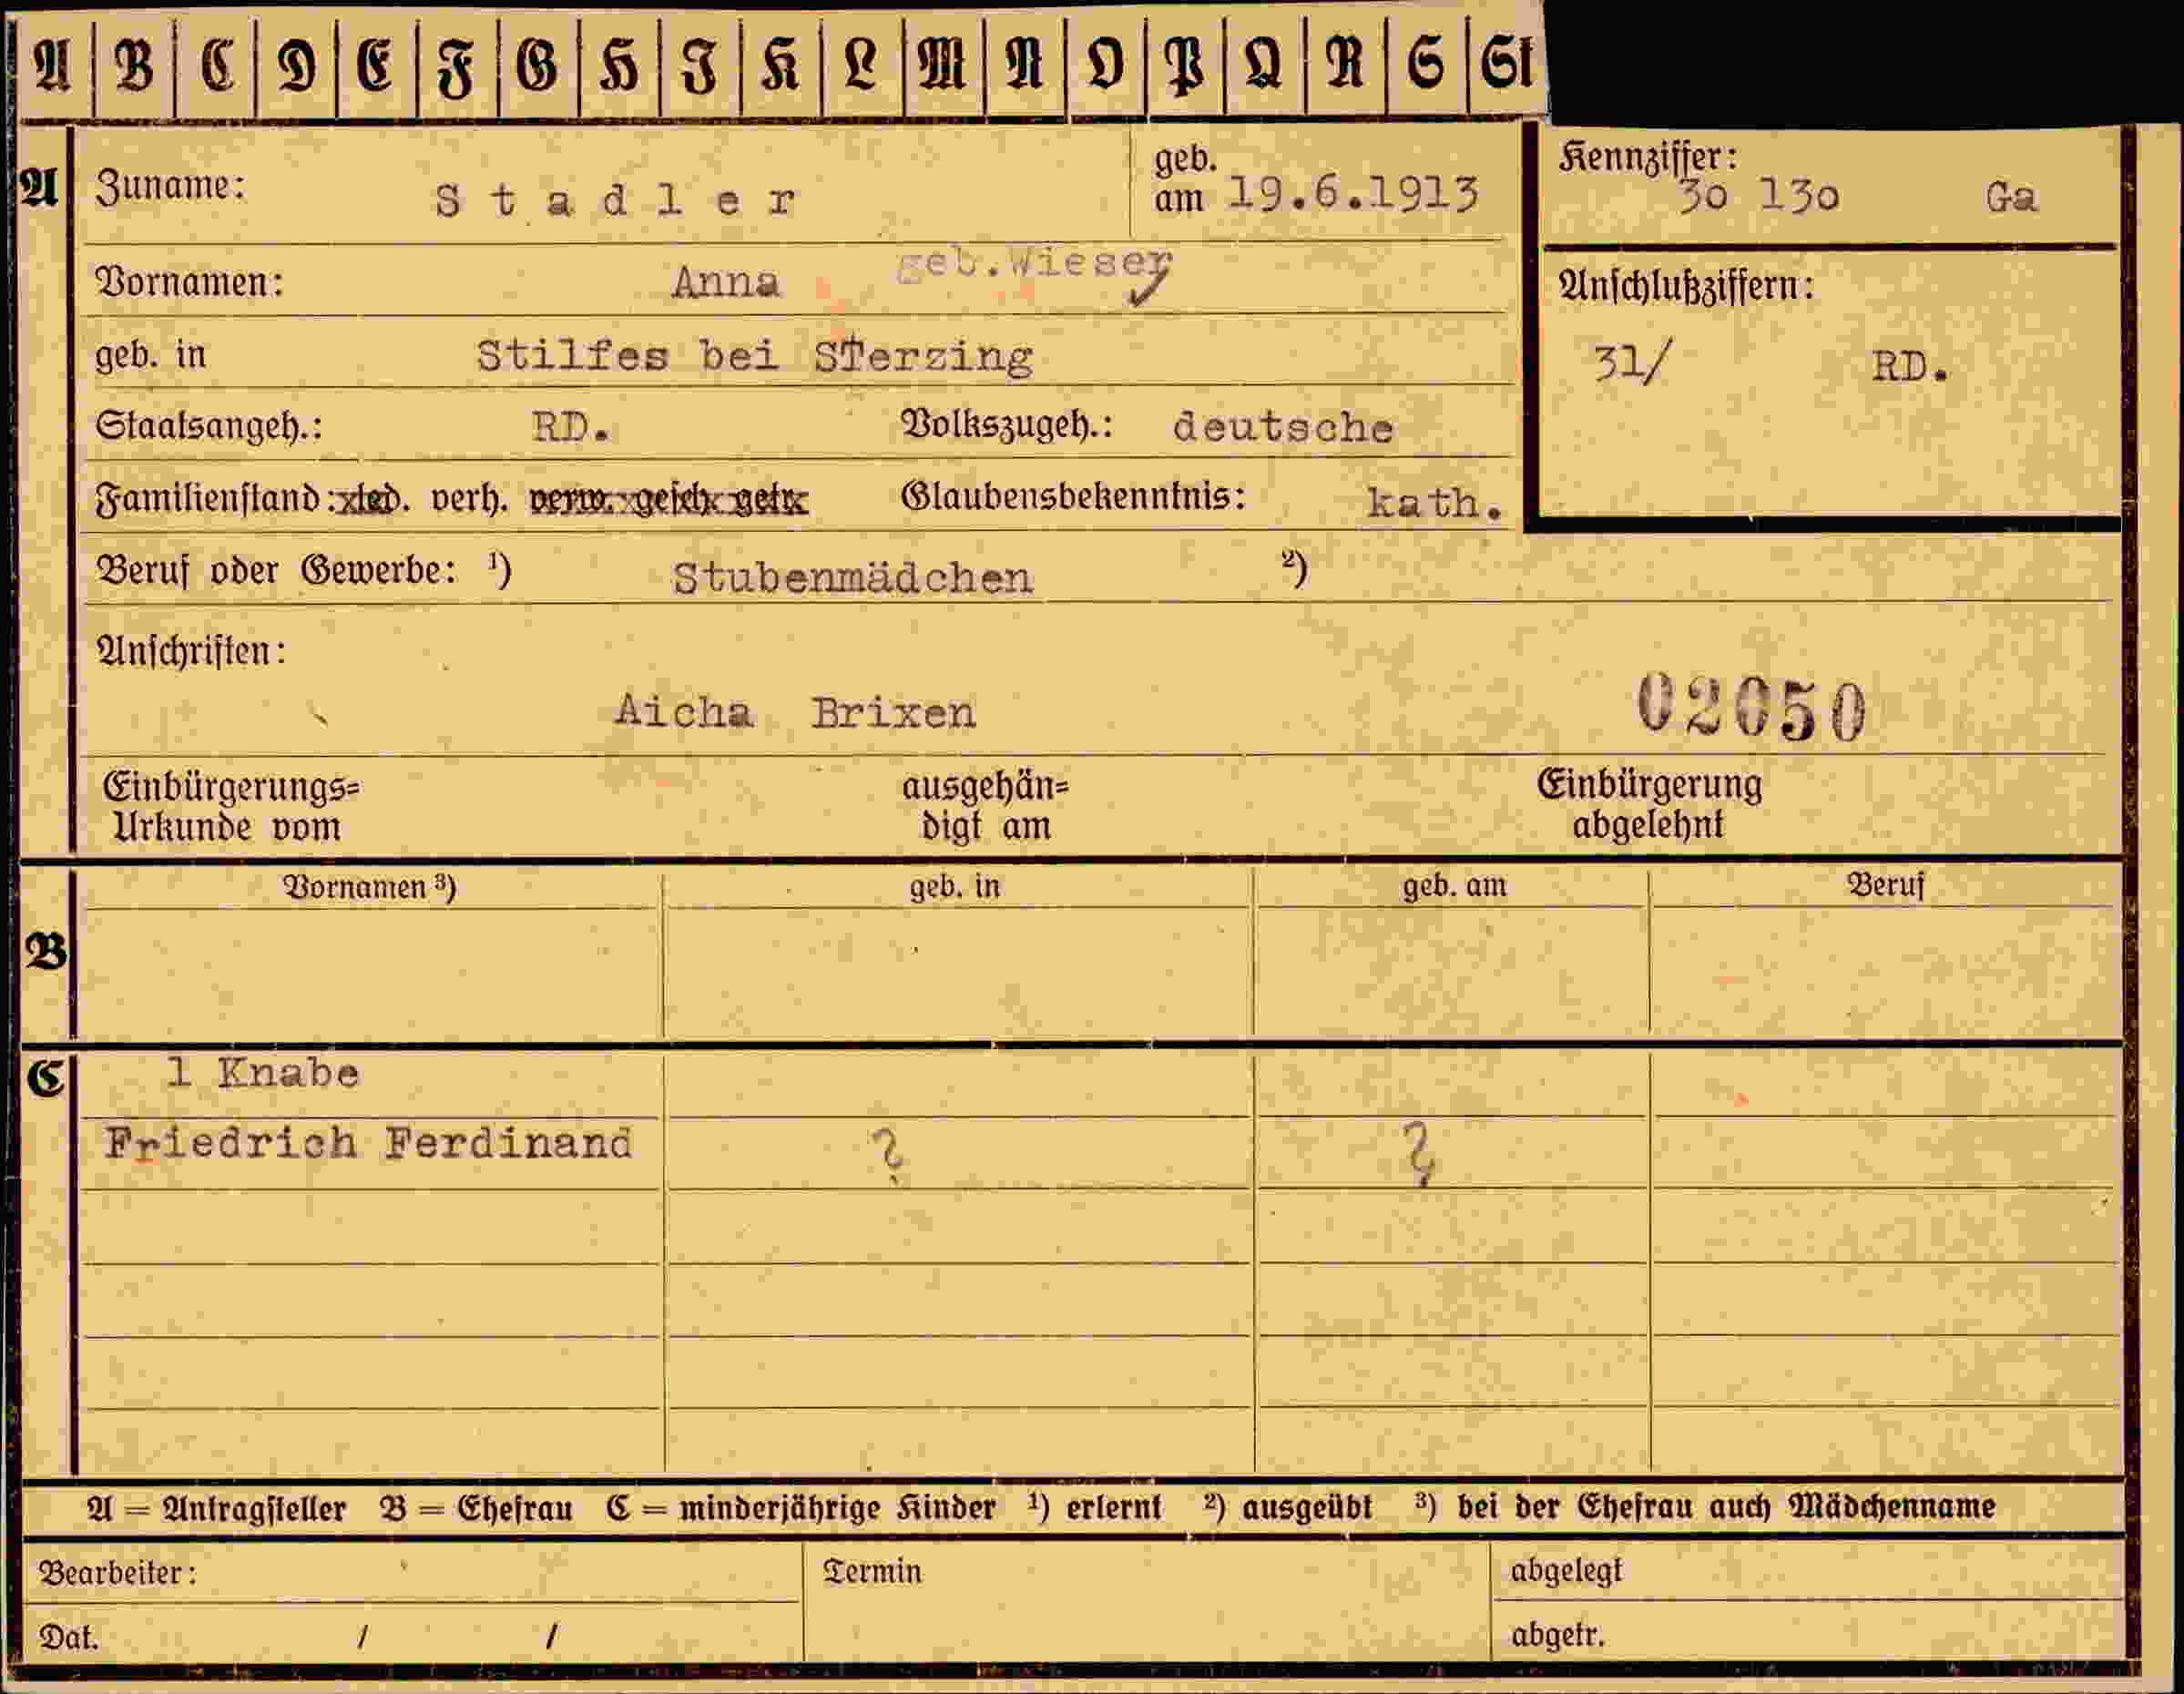 A B C D E F G H I K L M N O P Q R S St
A Zuname: Stadler geb. am 19.6.1913
Kennziffer: 3o 13o Ga
Vornamen: Anna geb.Wieser
Anschlußziffern:
31/ RD.
geb. in Stilfes bei STerzing
Staatsangeh.: RD. Volkszugeh.: deutsche
Familienstand: led. verh. verw. gesch. getr. Glaubensbekenntnis: kath.
Beruf oder Gewerbe: ¹) Stubenmädchen ²)
Anschriften:
Aicha Brixen 02050
Einbürgerungs= ausgehän= Einbürgerung
Urkunde vom digt am abgelehnt
Vornamen ³) geb. in geb. am Beruf
B
C 1 Knabe
Friedrich Ferdinand ? ?
A = Antragsteller B = Ehefrau C = minderjährige Kinder ¹) erlernt ²) ausgeübt ³) bei der Ehefrau auch Mädchenname
Bearbeiter: Termin abgelegt
Dat. / / abgetr.